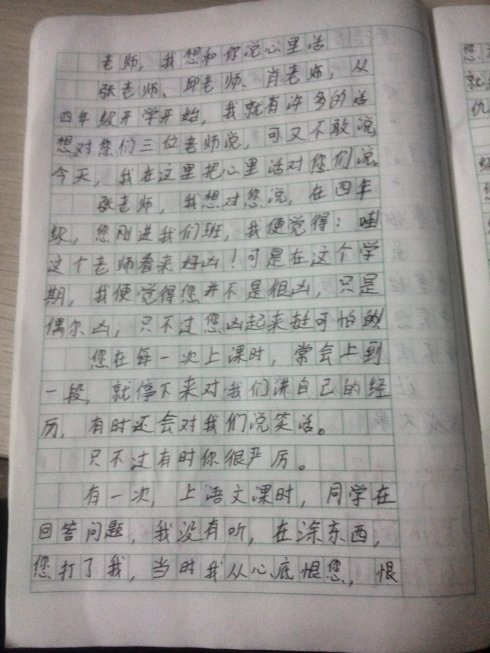 老师，我想和你说心里话
张老师、邱老师、肖老师，从
四年级开学开始，我就有许多的话
想对您们三位老师说，可又不敢说
今天，我在这里把心里话对您们说
张老师，我想对您说，在四年
级，您刚进我们班，我便觉得：哇
这个老师看来好凶！可是在这个学
期，我便觉得您并不是很凶，只是
偶尔凶，只不过您凶起来挺可怕的
您在每一次上课时，常会上到
一段，就停下来对我们讲自己的经
历，有时还会对我们说笑话。
只不过有时你很严厉。
有一次，上语文课时，同学在
回答问题，我没有听，在涂东西，
您打了我，当时我从心底恨您，恨
您
就
仇